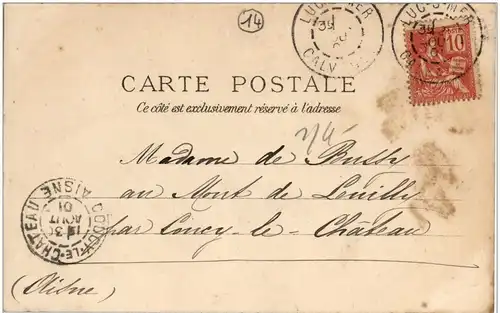 14
LUC-S-MER
CALV
LUC-S-MER
10
CARTE POSTALE
Ce côté est exclusivement réservé à l'adresse
Madame de Bussy
au Mont de Leuilly
par Coucy-le-Château
(Aisne)
COUCY-LE-CHATEAU AISNE
AOUT
01